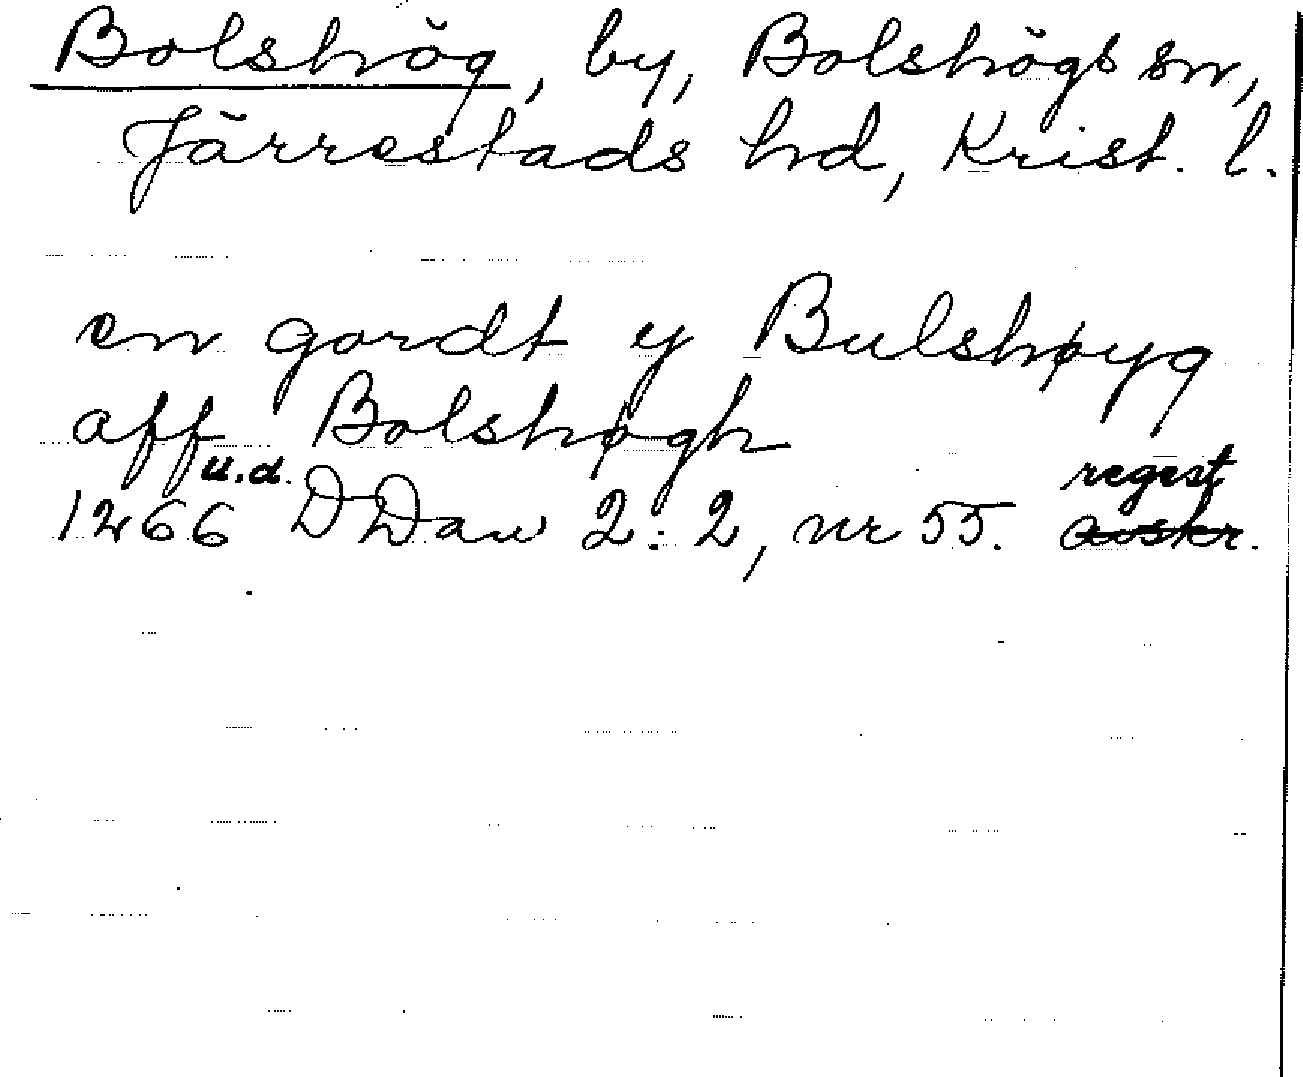 Bolshög, by, Bolshögs sn,
Järrestads hd, Krist. l.
en gordt y Bulshøyg
aff Bolshøgh
u.d. regest
1266 DDan 2:2, nr 55. avskr.